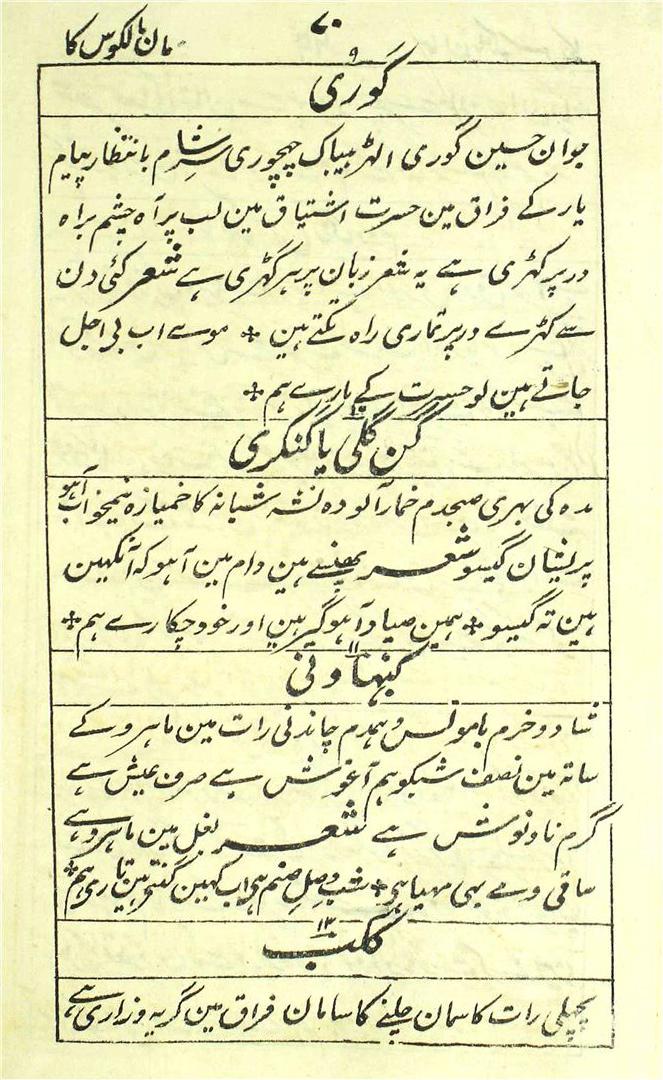 ۷۰
مان مالکوس کا
۹
گوری
جوان حسین گوری الہڑ بیباک چھچوری سرِشام بانتظار پیام
یار کے فراق مین حسرت اشتیاق مین لب پر آہ چشم براہ
در پر کہڑی ہے یہ شعر زبان پر ہر گہڑی ہے شعر کئی دن
سے کہڑے در پر تماری راہ تکتے ہین ❊ موسے اب بی اجل
جاتے ہین لو حسرت کے مارے ہم ❊
۱۰
گن گلی یا گنکری
مدہ کی بہری صبحدم خمار آلودہ نشہ شبانہ کا خمیازہ نیمخواب آہو
پریشان گیسو شعر پھنسے ہین دام مین آہو کہ آنکہین
ہین تہ گیسو ❊ ہمین صیاد آہو گیر ہین اور خود چکارے ہم ❊
۱۱
کنہاونی
شاد و خرم با مونس و ہمدم چاندنی رات مین ماہرو کے
ساتہ مین نصف شبکو ہم آغوش ہے صرف عیش ہے
گرم ناونوش ہے شعر بغل مین ماہرو ہے
ساقی و مے بہی مہیا ہی ❊ شب وصلِ صنم ہی اب کہین گنتے ہین تاری ہم ❊
۱۲
ککب
پچہلی رات کا سمان چلنے کا سامان فراق مین گریہ وزاری ہے،